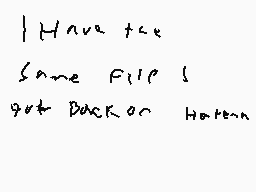 I Have the
Same FlIP I
got Back on Hatena